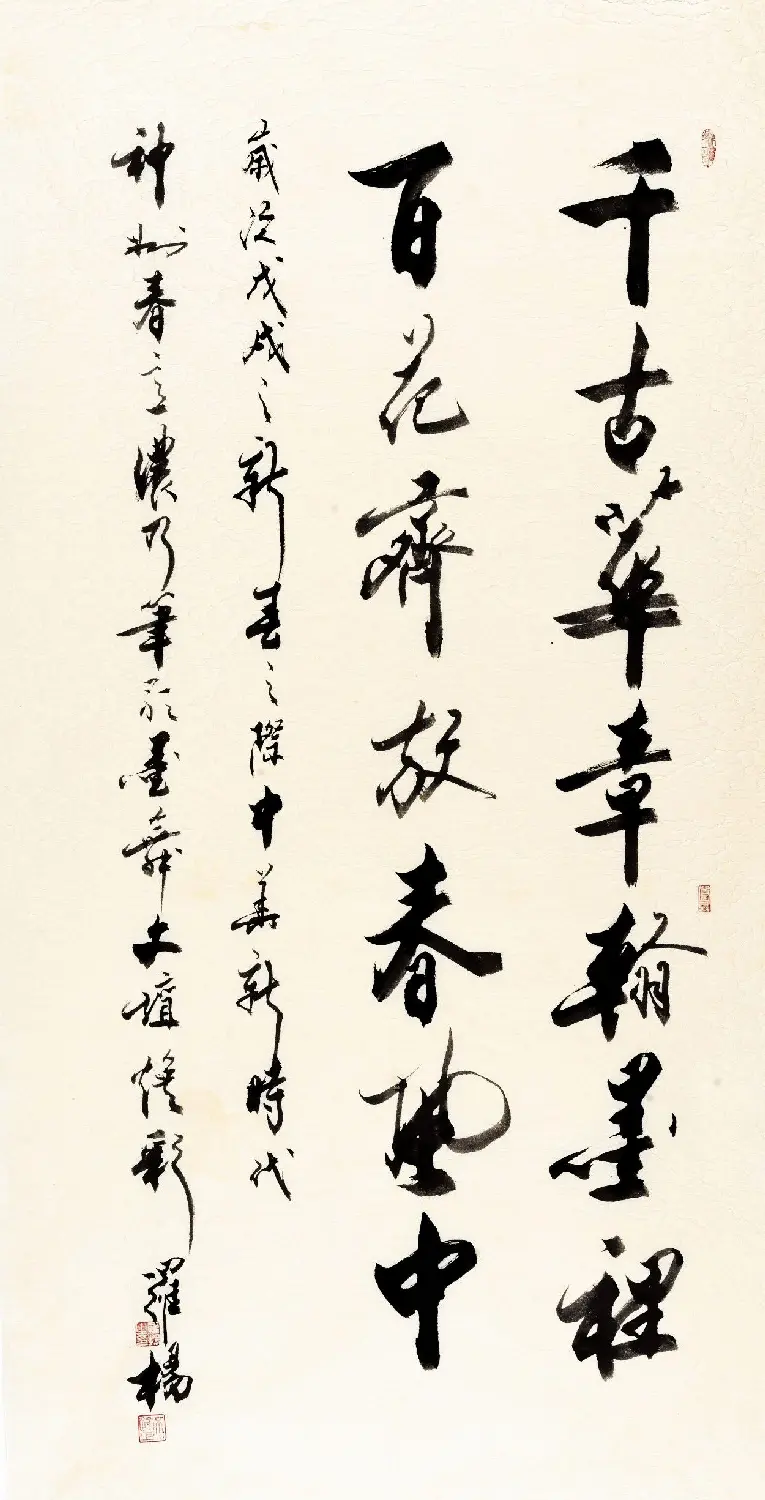 千古華章翰墨裡
百花齊放春風中
歲次戊戌之新春之際中華新時代
神州春意濃乃筆歌墨舞文壇煥彩 羅楊